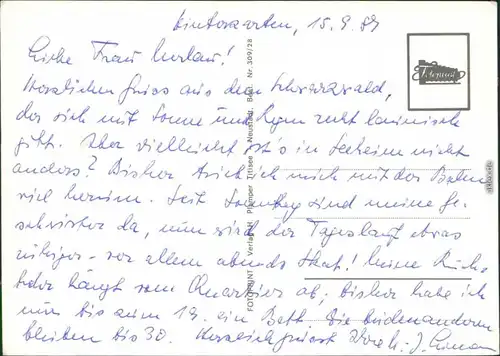 Hinterzarten, 15.9.89
Liebe Frau !
Herzlichen Gruss aus dem Schwarzwald,
der sich mit Sonne und Regen recht launisch
gibt. Aber vielleicht ist's in Seeheim nicht
anders? Bisher strich ich mich mit der Bahn
viel herum. Seit Sonntag sind meine Ge-
schwister da, nun wird der Tageslauf etwas
ruhiger - vor allem abends Skat! Meine Rück-
kehr hängt vom Quartier ab; bisher habe ich
nur bis zum 19. ein Bett. Die beiden anderen
bleiben bis 30. Herzlich grüsst Ihre
FOTOPRINT u. Verlag H. Pfumper Titisee - Neustadt, Best. Nr. 309/28
Fotoprint